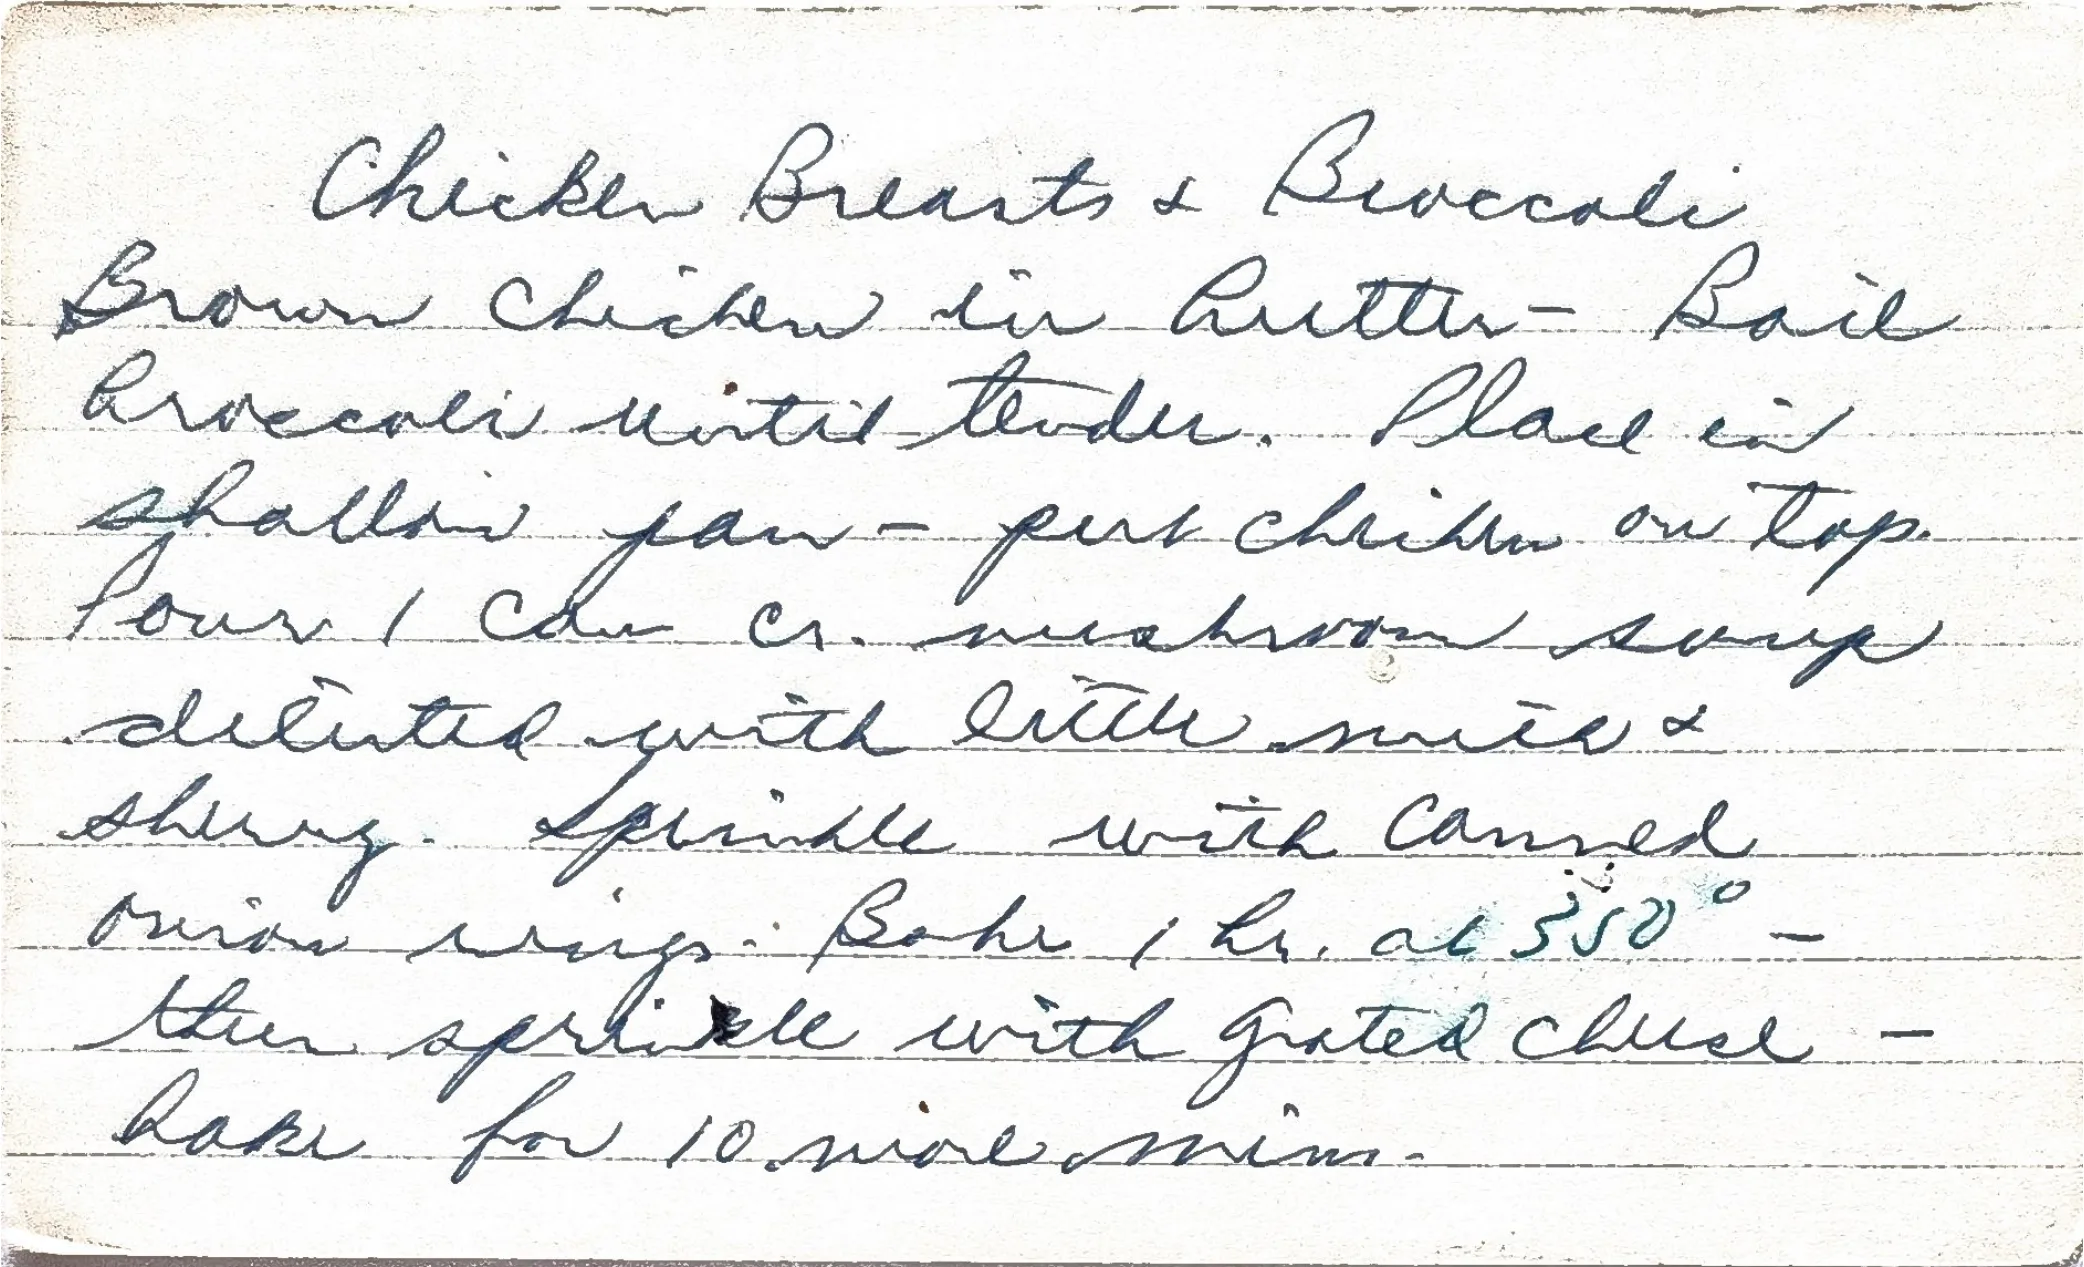 Chicken Breasts & Broccoli
Brown chicken in butter - Boil
broccoli until tender. Place in
shallow pan - put chicken on top.
Pour 1 can cr. mushroom soup
diluted with little milk &
sherry. Sprinkle with canned
onion rings. Bake 1 hr. at 350° -
then sprinkle with grated cheese -
bake for 10 more mins.